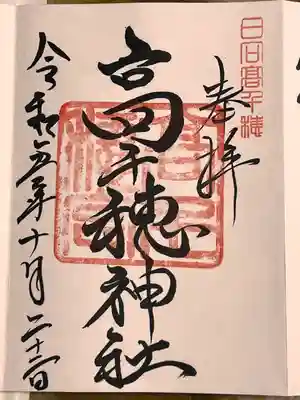 日向高千穂
奉拝
高千穂神社
令和五年十月二十二日